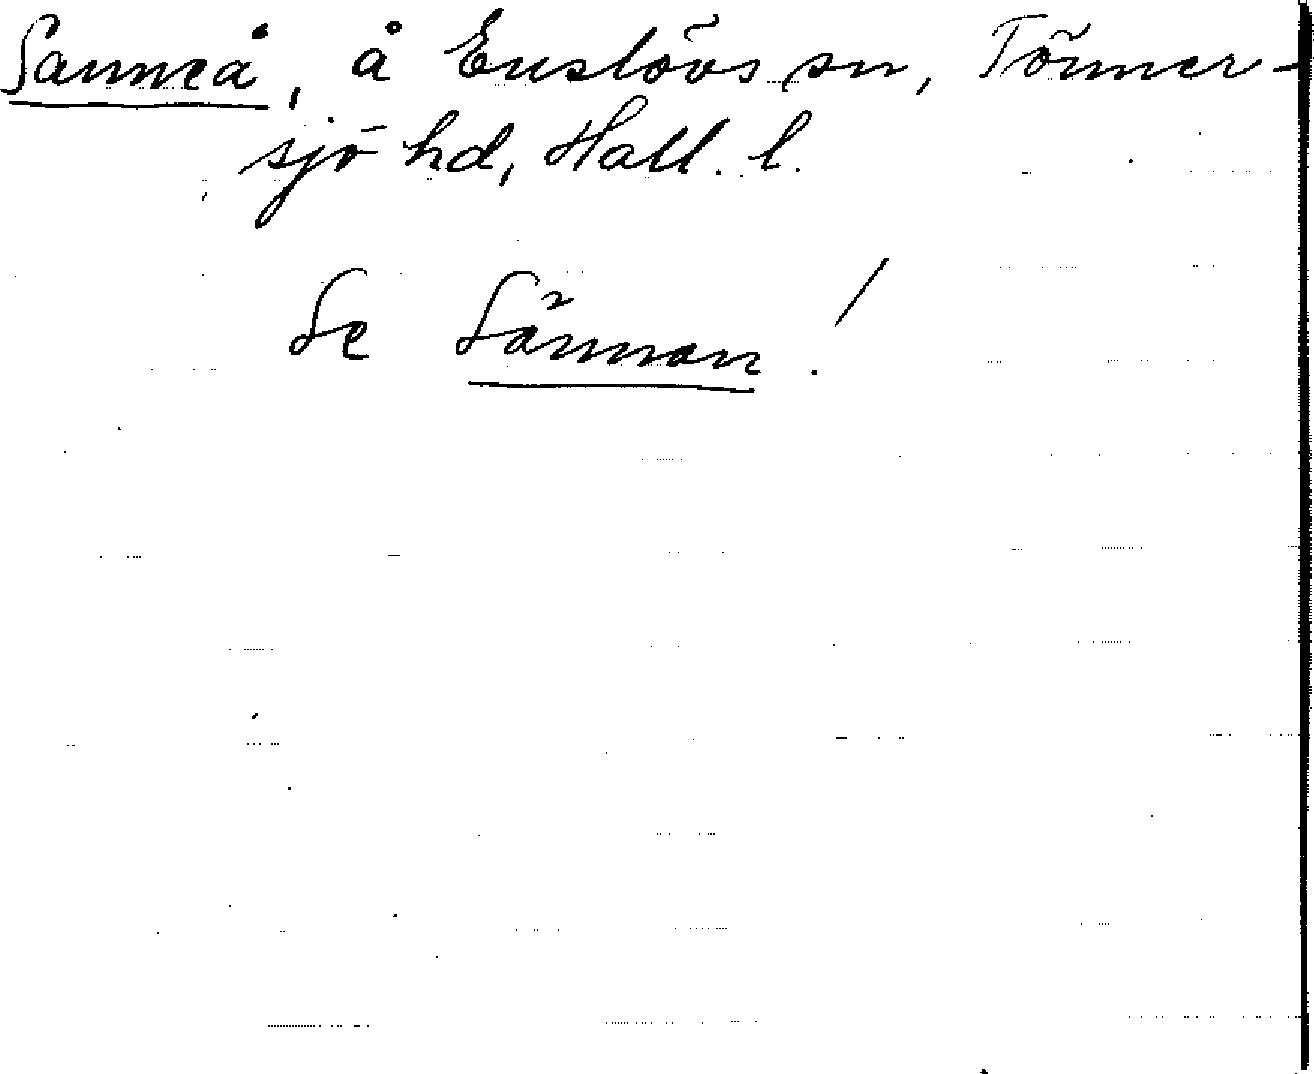 Sanneå, å Enslövs sn, Tönner-
sjö hd, Hall. l.
Se Sännan!